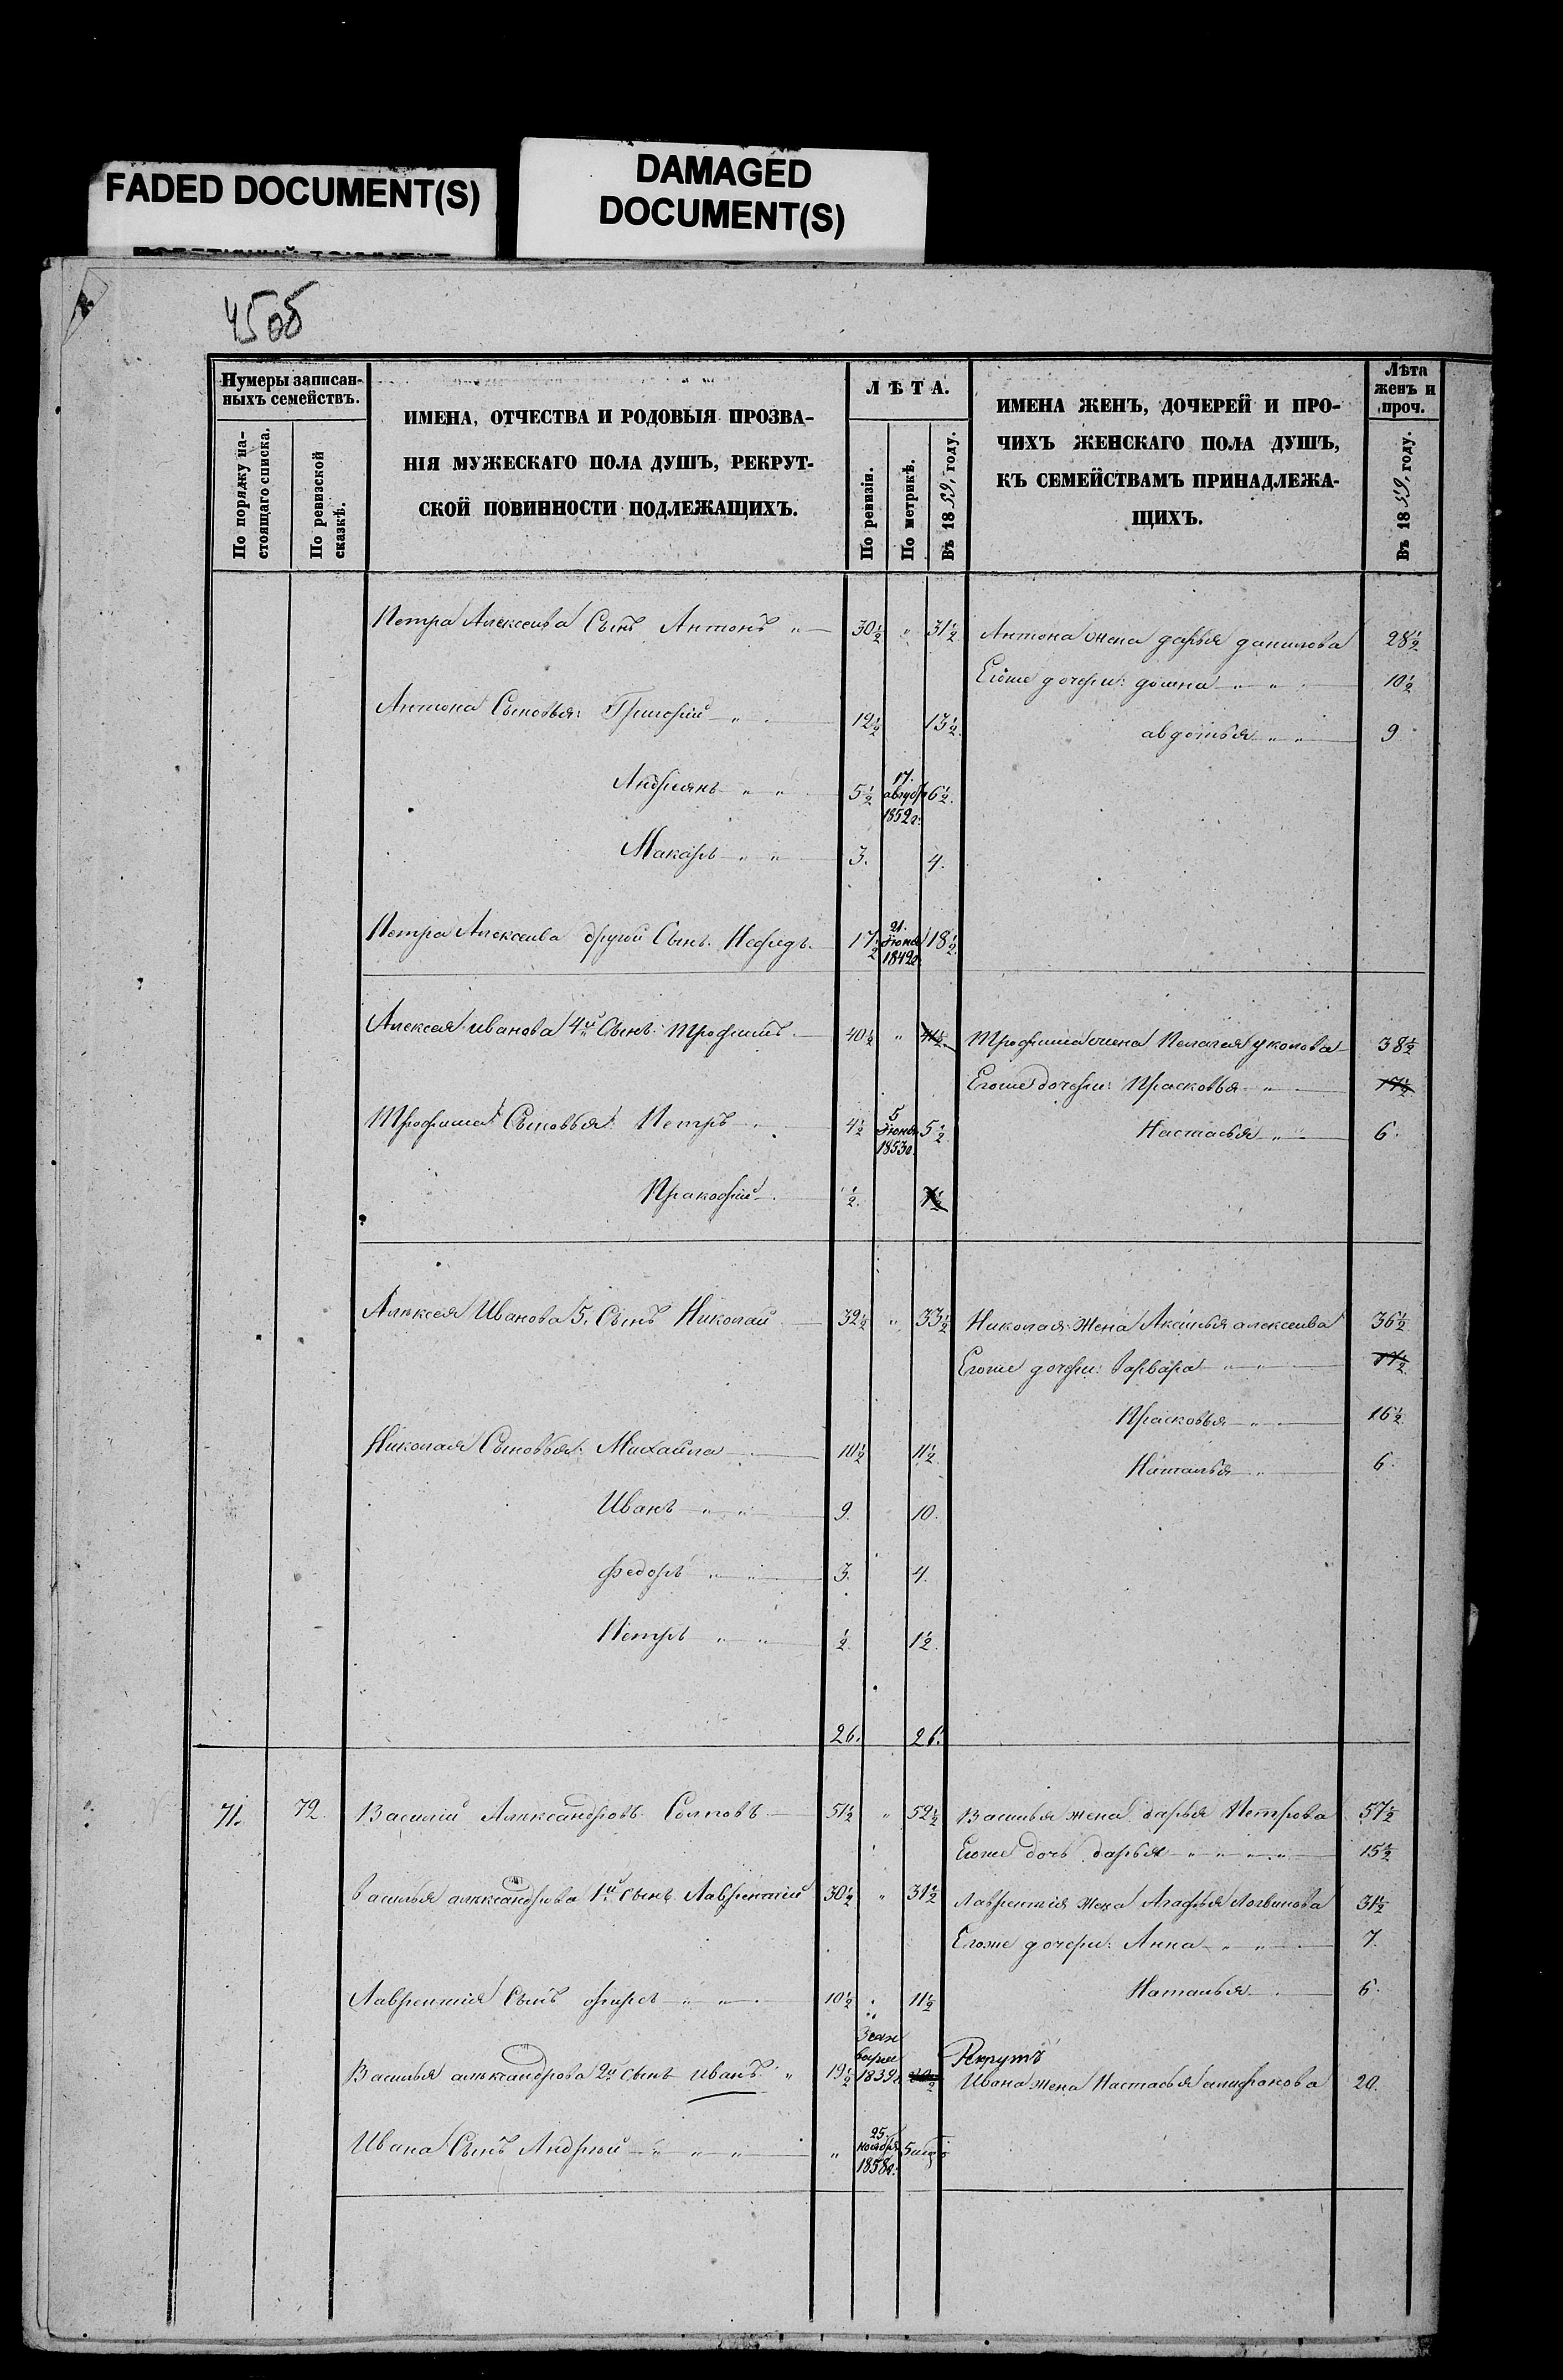 FADED DOCUMENT(S)
DAMAGED
DOCUMENT(S)
45об
Нумеры записан-
ныхъ семействъ.
По порядку на-
стоящаго списка.
По ревизской
сказкѣ.
ИМЕНА, ОТЧЕСТВА И РОДОВЫЯ ПРОЗВА-
НІЯ МУЖЕСКАГО ПОЛА ДУШЪ, РЕКРУТ-
СКОЙ ПОВИННОСТИ ПОДЛЕЖАЩИХЪ.
ЛѢТА.
По ревизіи.
По метрикѣ.
Въ 1859, году.
ИМЕНА ЖЕНЪ, ДОЧЕРЕЙ И ПРО-
ЧИХЪ ЖЕНСКАГО ПОЛА ДУШЪ,
КЪ СЕМЕЙСТВАМЪ ПРИНАДЛЕЖА-
ЩИХЪ.
Лѣта
женъ и
проч.
Въ 1859, году.
Петра Алексеива Сынъ Антонъ " 30½ " 31½ Антона жена дарья данилова 28½
Егоже дочери: домна " " 10½
Антона Сыновья: Григорій " 12½ 13½
авдотья " " 9
Андриянъ " " 5½ 17. август 1852г: 6½.
Макаръ " " 3. 4.
Петра Алексеива другой Сынъ. Нефедъ. 17½ 21. Июня 1842г. 18½.
Алексея иванова 4й Сынъ: трофимъ 40½ " 41½. трофима жена Пелагея 38½
Егоже дочери: Прасковья " 17½
Трофима Сыновья Петръ " 4½ 5 Июня 1853г. 5½.
Настасья " " 6.
Пракофий ½. 1½
Алексея Иванова 5. Сынъ Николай 32½ " 33½ Николая Жена Аксинья алексеива 36½
Егоже дочери: Варвара " " 17½.
Прасковья " 16½
Николая Сыновья: Михайла 10½ 11½
Наталья " 6.
Иванъ " " 9. 10.
федоръ " " 3. 4.
Петръ " " ½. 1½.
26. 26.
71. 72. Василий Александровъ 51½ " 52½ Василья жена дарья Петрова 57½
Егоже дочь дарья " " " " 15½
Василья александрова 1й сынъ Лаврентий 30½ " 31½ Лаврентия жена Агафья Логвинова 31½
Егоже дочери: Анна " " 7.
Лаврентия Сынъ фирсъ " " 10½ " 11½
Наталья 6.
Василья александрова 2й сынъ иванъ " 19½ 3 января 1839г. 20½
Рекрутъ
Ивана жена Настасья 20.
Ивана Сынъ Андрей " " " " 25. ноября 1858г: